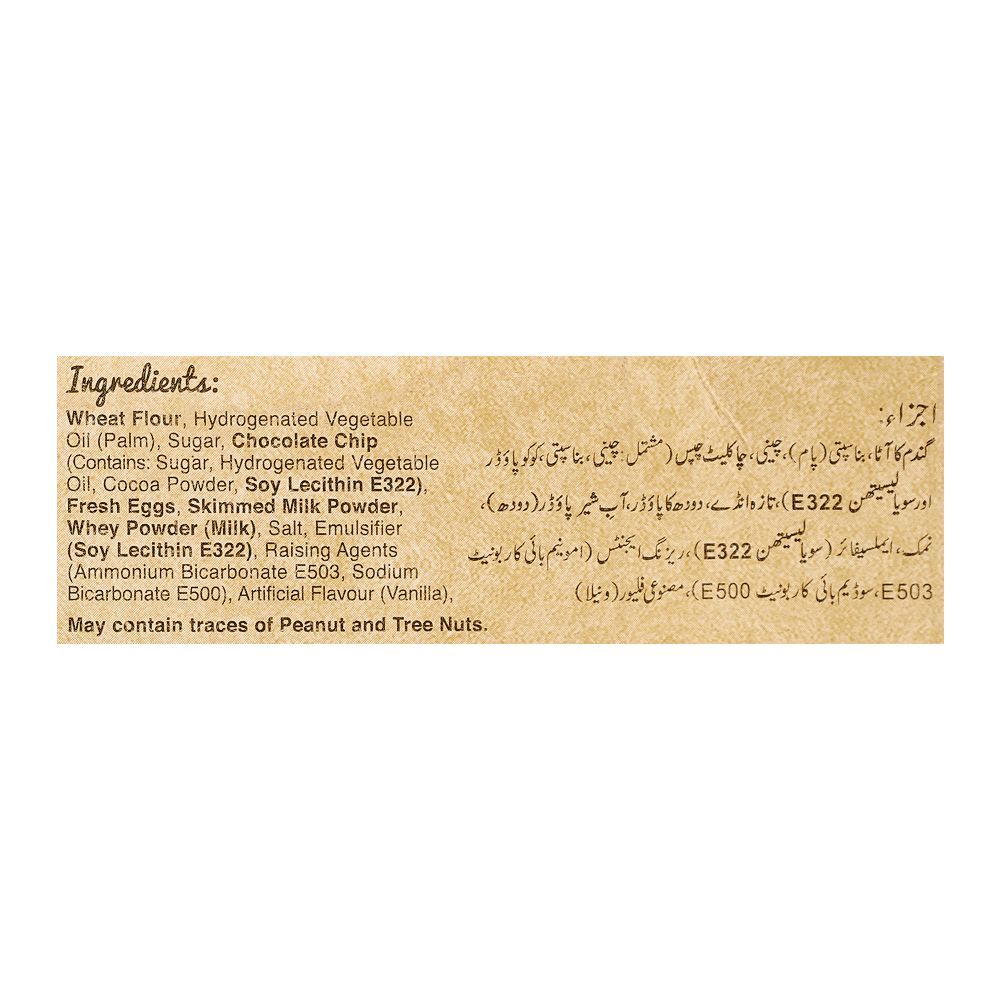 Ingredients:
Wheat Flour, Hydrogenated Vegetable
Oil (Palm), Sugar, Chocolate Chip
(Contains: Sugar, Hydrogenated Vegetable
Oil, Cocoa Powder, Soy Lecithin E322),
Fresh Eggs, Skimmed Milk Powder,
Whey Powder (Milk), Salt, Emulsifier
(Soy Lecithin E322), Raising Agents
(Ammonium Bicarbonate E503, Sodium
Bicarbonate E500), Artificial Flavour (Vanilla),
May contain traces of Peanut and Tree Nuts.
اجزاء:
گندم کا آٹا، بناسپتی (پام)، چینی، چاکلیٹ چپس (مشتمل: چینی، بناسپتی، کوکو پاؤڈر
اور سویا لیسیتھن E322)، تازہ انڈے، دودھ کا پاؤڈر، آبِ شیر پاؤڈر (دودھ)،
نمک، ایملسیفائر (سویا لیسیتھن E322)، ریزنگ ایجنٹس (امونیم بائی کاربونیٹ
E503، سوڈیم بائی کاربونیٹ E500)، مصنوعی فلیور (ونیلا)